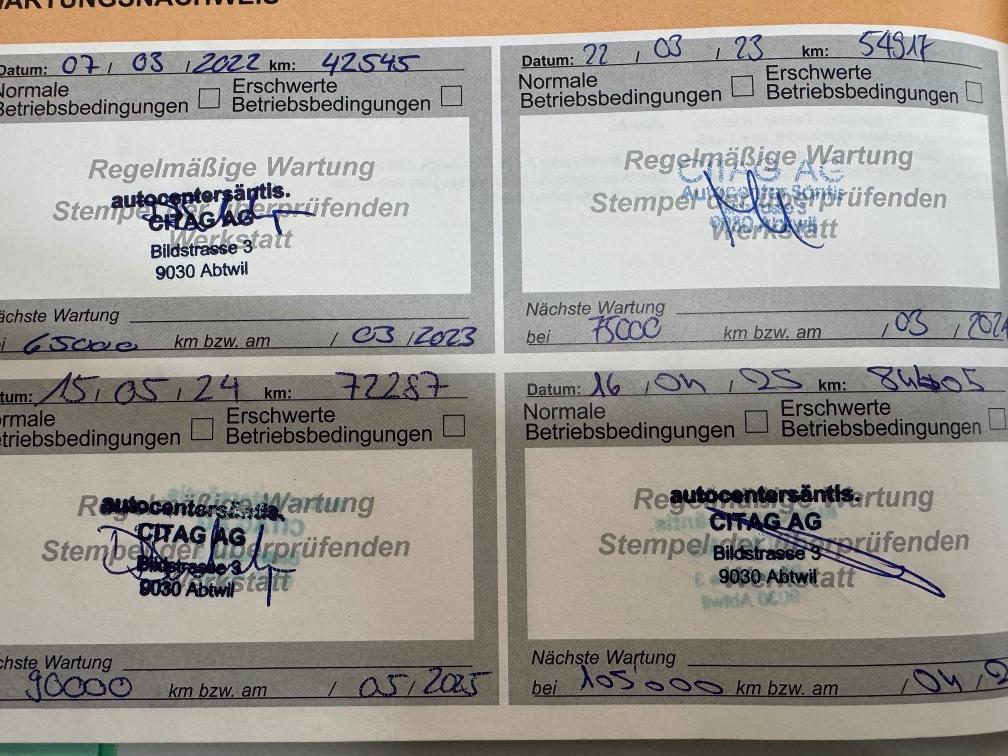 WARTUNGSNACHWEIS
Datum: 07 / 03 / 2022 km: 42545
Normale Betriebsbedingungen
Erschwerte Betriebsbedingungen
Regelmäßige Wartung
Stempel der überprüfenden
Werkstatt
autocentersäntis.
CITAG AG
Bildstrasse 3
9030 Abtwil
Nächste Wartung
bei 65000 km bzw. am / 03 / 2023
Datum: 22 / 03 / 23 km: 54917
Normale Betriebsbedingungen
Erschwerte Betriebsbedingungen
Regelmäßige Wartung
Stempel der überprüfenden
Werkstatt
CITAG AG
Autocenter Säntis
9030 Abtwil
Nächste Wartung
bei 75000 km bzw. am / 03 / 2024
Datum: 15 / 05 / 24 km: 72287
Normale Betriebsbedingungen
Erschwerte Betriebsbedingungen
Regelmäßige Wartung
Stempel der überprüfenden
Werkstatt
autocentersäntis.
CITAG AG
Bildstrasse 3
9030 Abtwil
Nächste Wartung
90000 km bzw. am / 05 / 2025
Datum: 16 / 04 / 25 km:
Normale Betriebsbedingungen
Erschwerte Betriebsbedingungen
Regelmäßige Wartung
Stempel der überprüfenden
Werkstatt
autocentersäntis.
CITAG AG
Bildstrasse 3
9030 Abtwil
Nächste Wartung
bei 105'000 km bzw. am / 04 / 2